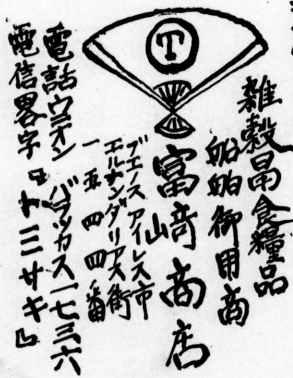 T
雑穀昂食糧品
船舶御用商
富崎商店
ブエノスアイレス市
エルナンダリアス街
一五四四番
電話ウニオン バラッカス一七三六
電信畧字『トミサキ』